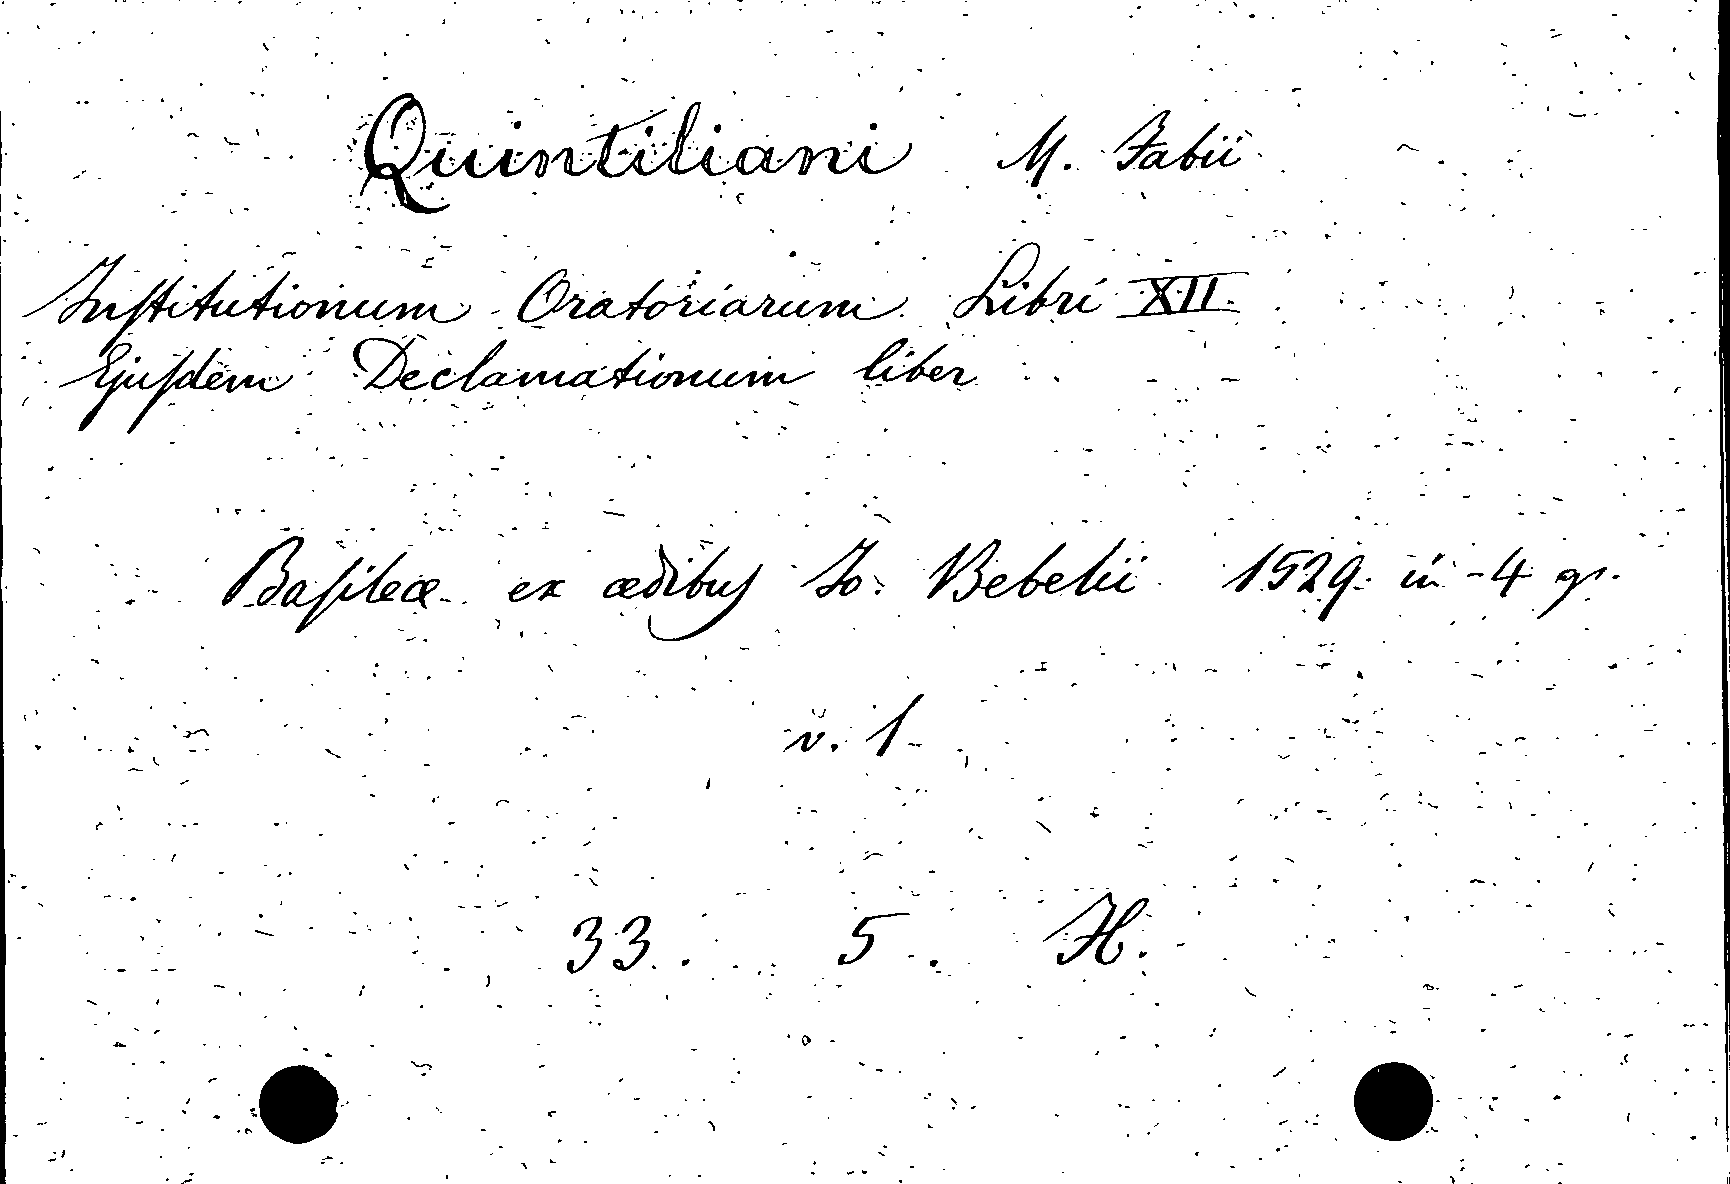 Quintiliani M. Fabii
Inſtitutionum Oratoriarum Libri XII.
Ejuſdem Declamationum liber
Baſileæ ex ædibus Jo. Bebelii 1529. in-4 gr.
v. 1
33. 5. H.